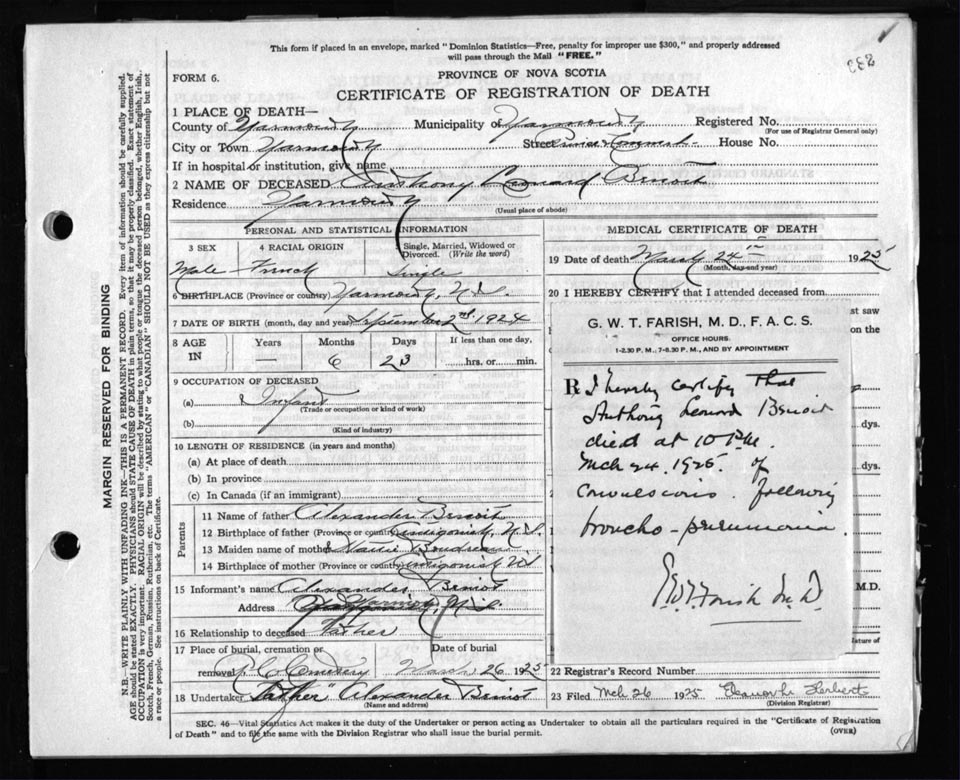 This form if placed in an envelope, marked "Dominion Statistics—Free, penalty for improper use $300," and properly addressed
will pass through the Mail "FREE."
283
FORM 6.
PROVINCE OF NOVA SCOTIA
CERTIFICATE OF REGISTRATION OF DEATH
1 PLACE OF DEATH—
County of Yarmouth Municipality of Yarmouth Registered No.
(For use of Registrar General only)
City or Town Yarmouth Street Prince House No.
If in hospital or institution, give name
2 NAME OF DECEASED Anthony Leonard Benoit
Residence Yarmouth
(Usual place of abode)
PERSONAL AND STATISTICAL INFORMATION
3 SEX 4 RACIAL ORIGIN Single, Married, Widowed or
Divorced. (Write the word)
Male French Single
6 BIRTHPLACE (Province or country) Yarmouth, N.S.
7 DATE OF BIRTH (month, day and year) September 2nd. 1924
8 AGE IN Years Months Days If less than one day,
— 6 23 hrs. or min.
9 OCCUPATION OF DECEASED
(a) Infant
(Trade or occupation or kind of work)
(b)
(Kind of industry)
10 LENGTH OF RESIDENCE (in years and months)
(a) At place of death
(b) In province
(c) In Canada (if an immigrant)
Parents
11 Name of father Alexander Benoit
12 Birthplace of father (Province or country) Antigonish, N.S.
13 Maiden name of mother Boudreau
14 Birthplace of mother (Province or country) Antigonish NS
15 Informant's name Alexander Benoit
Address Yarmouth, N.S.
16 Relationship to deceased Father
17 Place of burial, cremation or Date of burial
removal R.C. Cemetery March 26 1925
18 Undertaker "Father" Alexander Benoit
(Name and address)
MEDICAL CERTIFICATE OF DEATH
19 Date of death March 24th 1925
(Month, day and year)
20 I HEREBY CERTIFY that I attended deceased from
st saw
on the
G. W. T. FARISH, M. D., F. A. C. S.
OFFICE HOURS.
1-2.30 P. M., 7-8.30 P. M., AND BY APPOINTMENT
R I hereby certify that
Anthony Leonard Benoit
died at 10 P.M.
Mch 24. 1925. of
Convulsions. following
broncho-pneumonia
G.W.T. Farish M.D.
dys.
dys.
M.D.
ature of
22 Registrar's Record Number
23 Filed Mch 26 1925 Herbert
(Division Registrar)
SEC. 46—Vital Statistics Act makes it the duty of the Undertaker or person acting as Undertaker to obtain all the particulars required in the "Certificate of Registration
of Death" and to file the same with the Division Registrar who shall issue the burial permit.
(OVER)
MARGIN RESERVED FOR BINDING
N.B.—WRITE PLAINLY WITH UNFADING INK—THIS IS A PERMANENT RECORD. Every item of information should be carefully supplied.
AGE should be stated EXACTLY. PHYSICIANS should STATE CAUSE OF DEATH in plain terms, so that it may be properly classified. Exact statement of
OCCUPATION is very important. RACIAL ORIGIN will be described by stating to what people or tongue the deceased person belonged, whether English, Irish,
Scotch, French, German, Russian, Ruthenian, etc. The terms "AMERICAN" or "CANADIAN" SHOULD NOT BE USED as they express citizenship but not
a race or people. See instructions on back of Certificate.